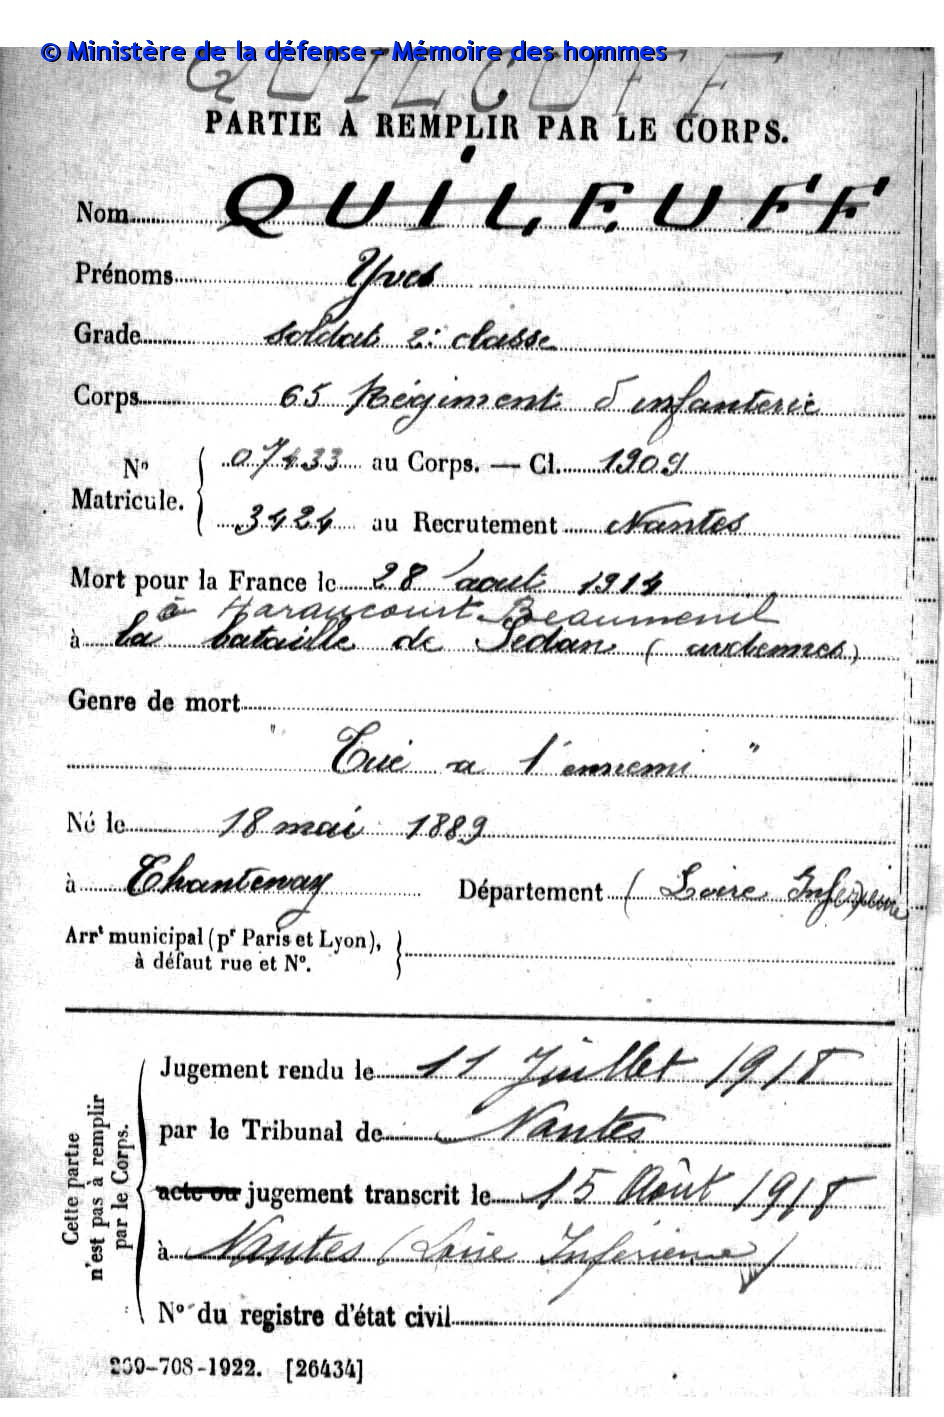 © Ministère de la défense - Mémoire des hommes
QUILCUFF
PARTIE A REMPLIR PAR LE CORPS.
Nom QUILEUFF
Prénoms Yves
Grade soldat 2e classe
Corps 65 Régiment d'infanterie
No Matricule. { 07433 au Corps. — Cl. 1909
3424 au Recrutement Nantes
Mort pour la France le 28 aout 1914
à Haraucourt-Beaumenil
à la bataille de Sedan (ardennes)
Genre de mort
" Tué a l'ennemi "
Né le 18 mai 1889
à Chantenay Département (Loire Inférieure
Arrt municipal (pr Paris et Lyon),
à défaut rue et No.
Cette partie
n'est pas à remplir
par le Corps.
Jugement rendu le 11 Juillet 1918
par le Tribunal de Nantes
acte ou jugement transcrit le 15 Août 1918
à Nantes (Loire Inférieure)
No du registre d'état civil
269-708-1922. [26434]